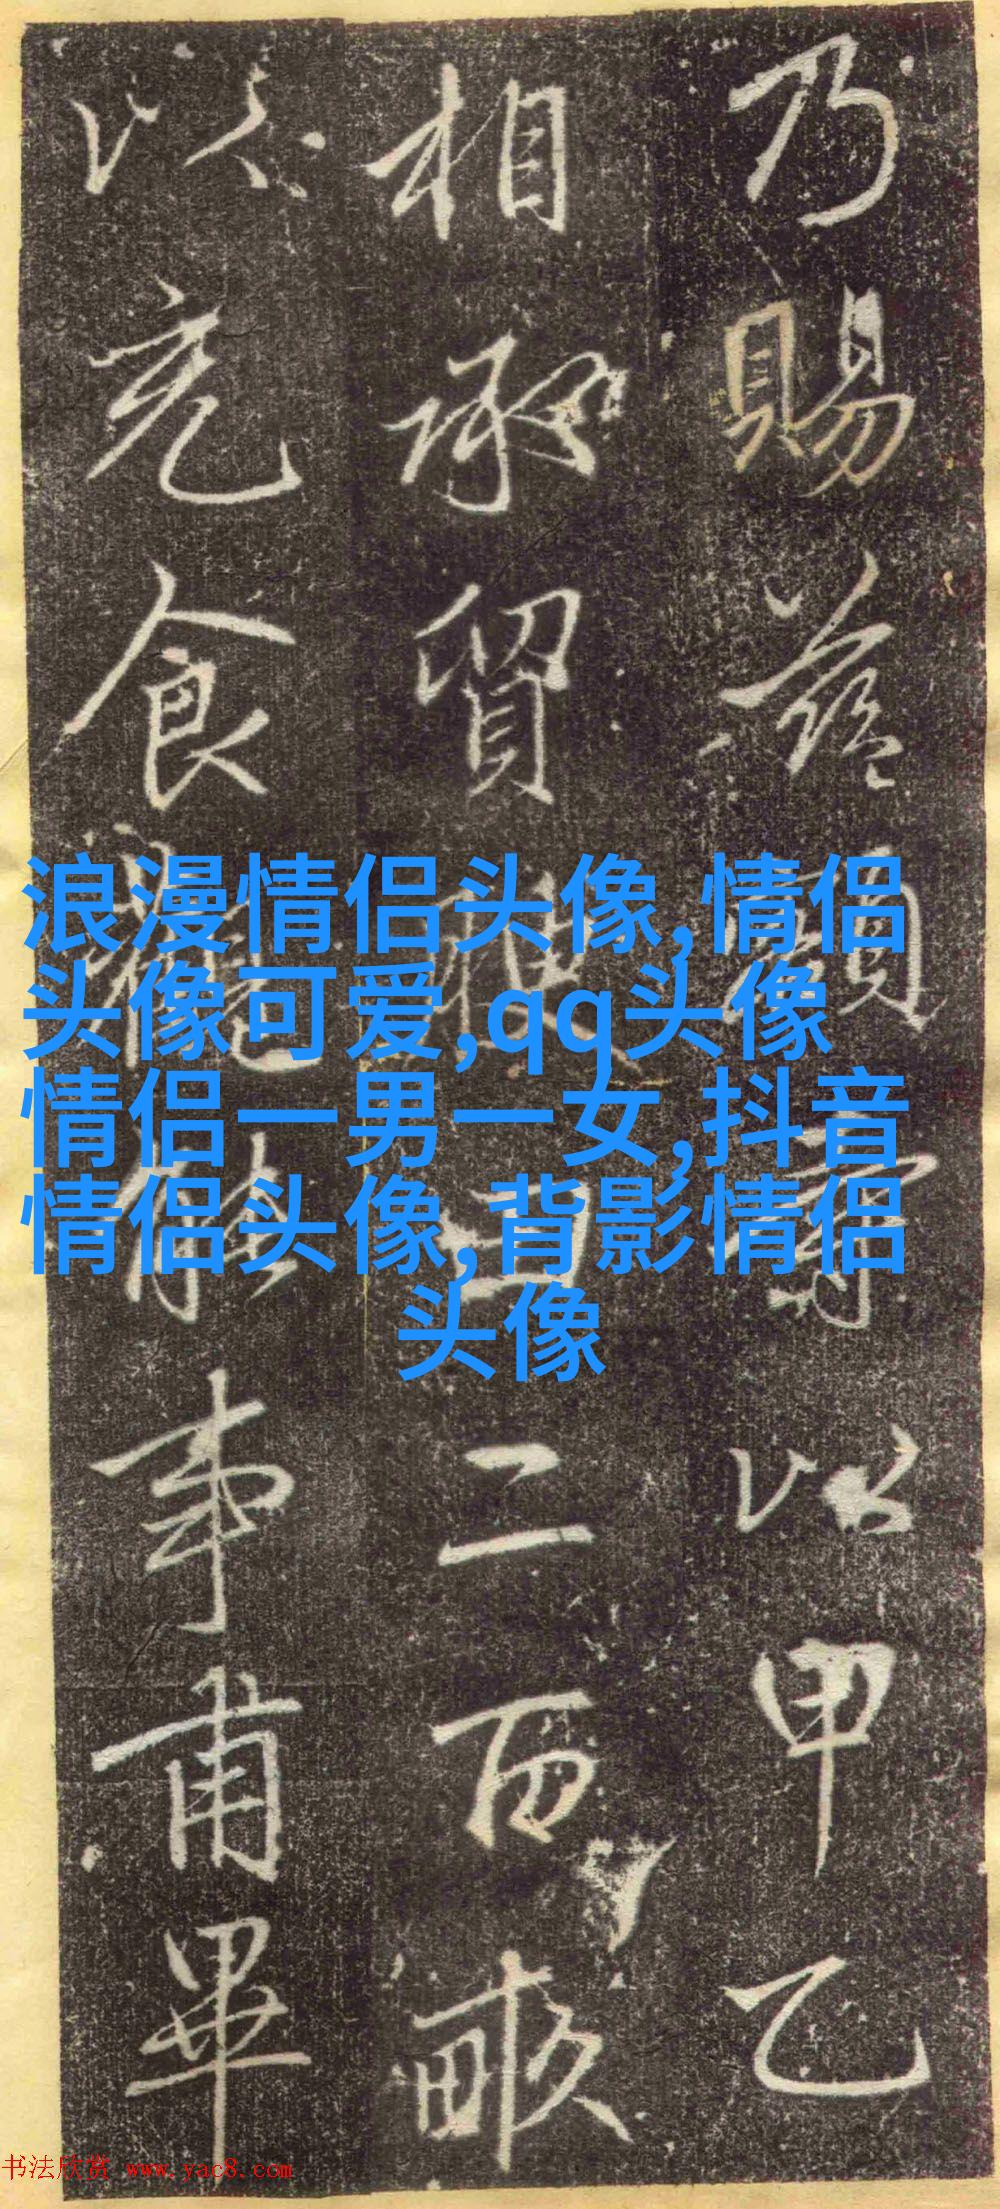 乃賜益願壽以甲乙
相承貿
二百畝
以充食
能事甫畢
浪漫情侣头像,情侣
头像可爱,qq头像
情侣一男一女,抖音
情侣头像,背影情侣
头像
书法欣赏 www.yac8.com